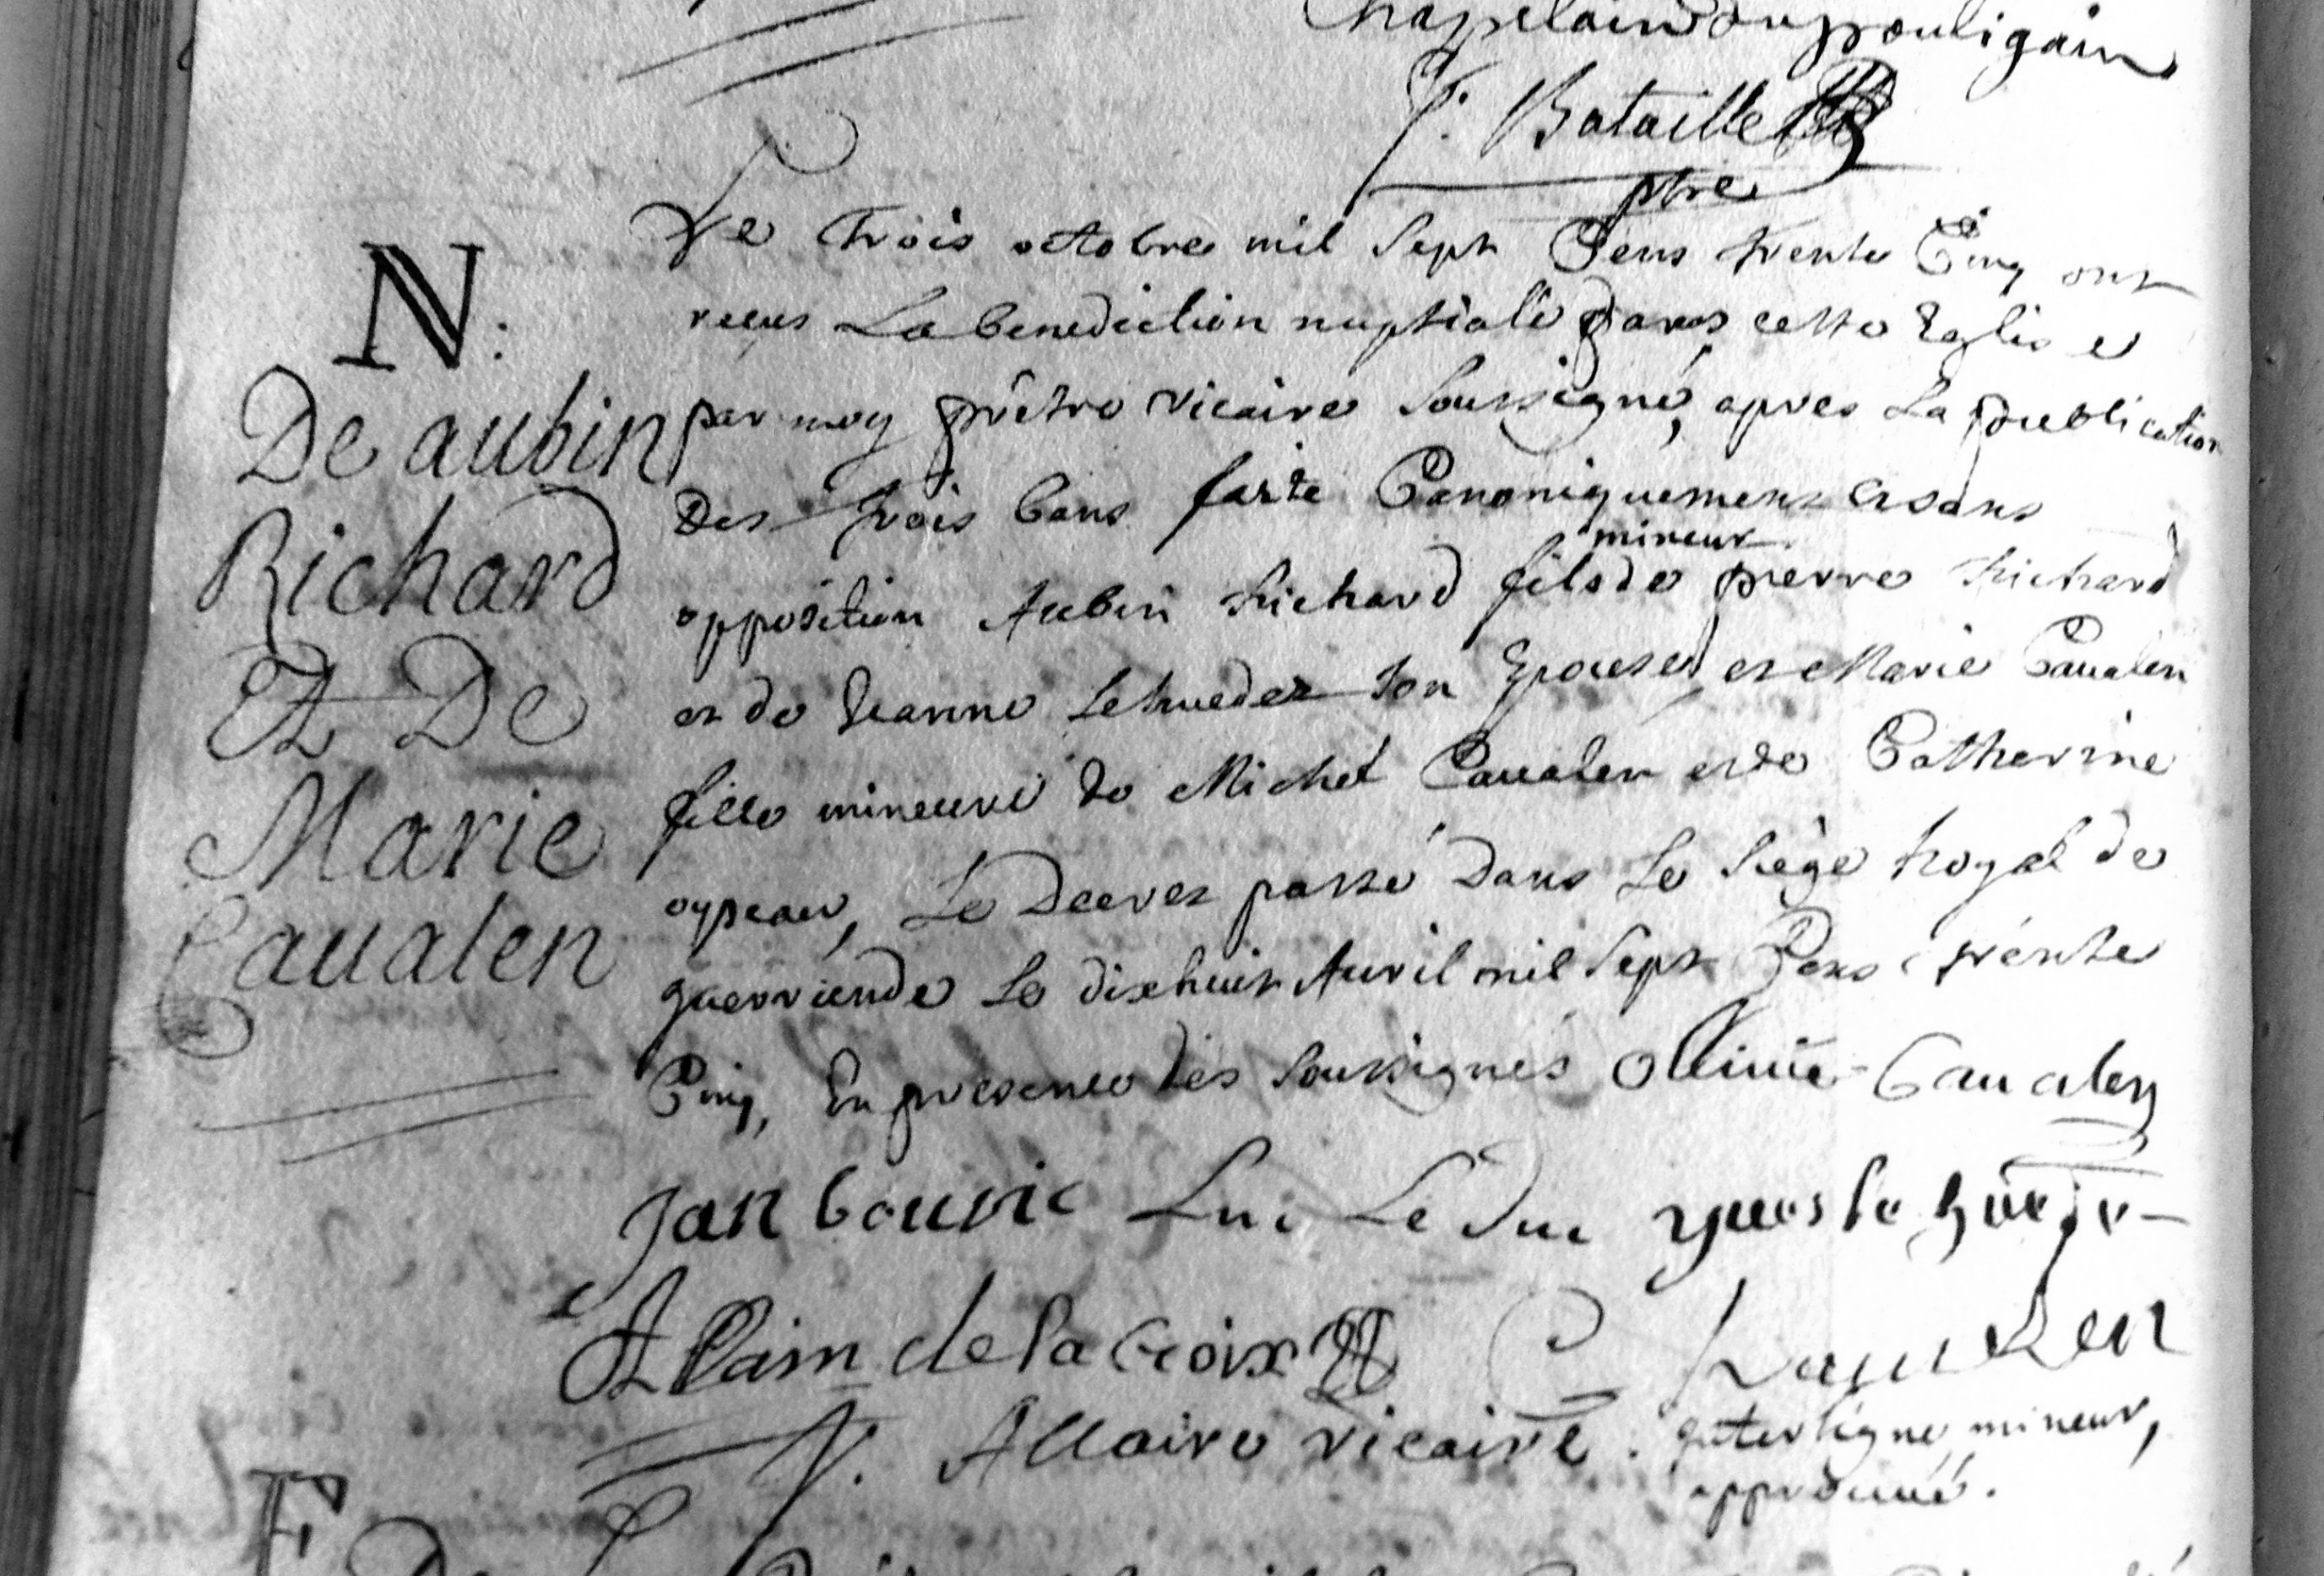 Chapelain du pouligain
J. Bataille
ptre
N:
De aubin
Richard
Et De
Marie
Caualen
Le trois octobre mil Sept Cens trente Cinq ont
receus La benediction nuptiale dans cette Eglise et
par moy prêtre vicaire Soussigné, apres La publication
Des trois bans faite Canoniquement et sans
mineur
opposition Aubin Richard fils de pierre Richard
et de Jeanne Lehuedez son Epouse, et Marie Caualen
fille mineure de Michel Caualen et de Catherine
oyseau, Le Decret passé Dans Le Siège Royal de
guerrande Le dixhuit Auril mil Sept Cens trente
Cinq, En presence des Soussignés Olliuie Caualen
Jan bouuic Luc Le Duc yues le huede
Allain de la Croix
J. Allaire vicaire. Interligne mineur,
approuué.